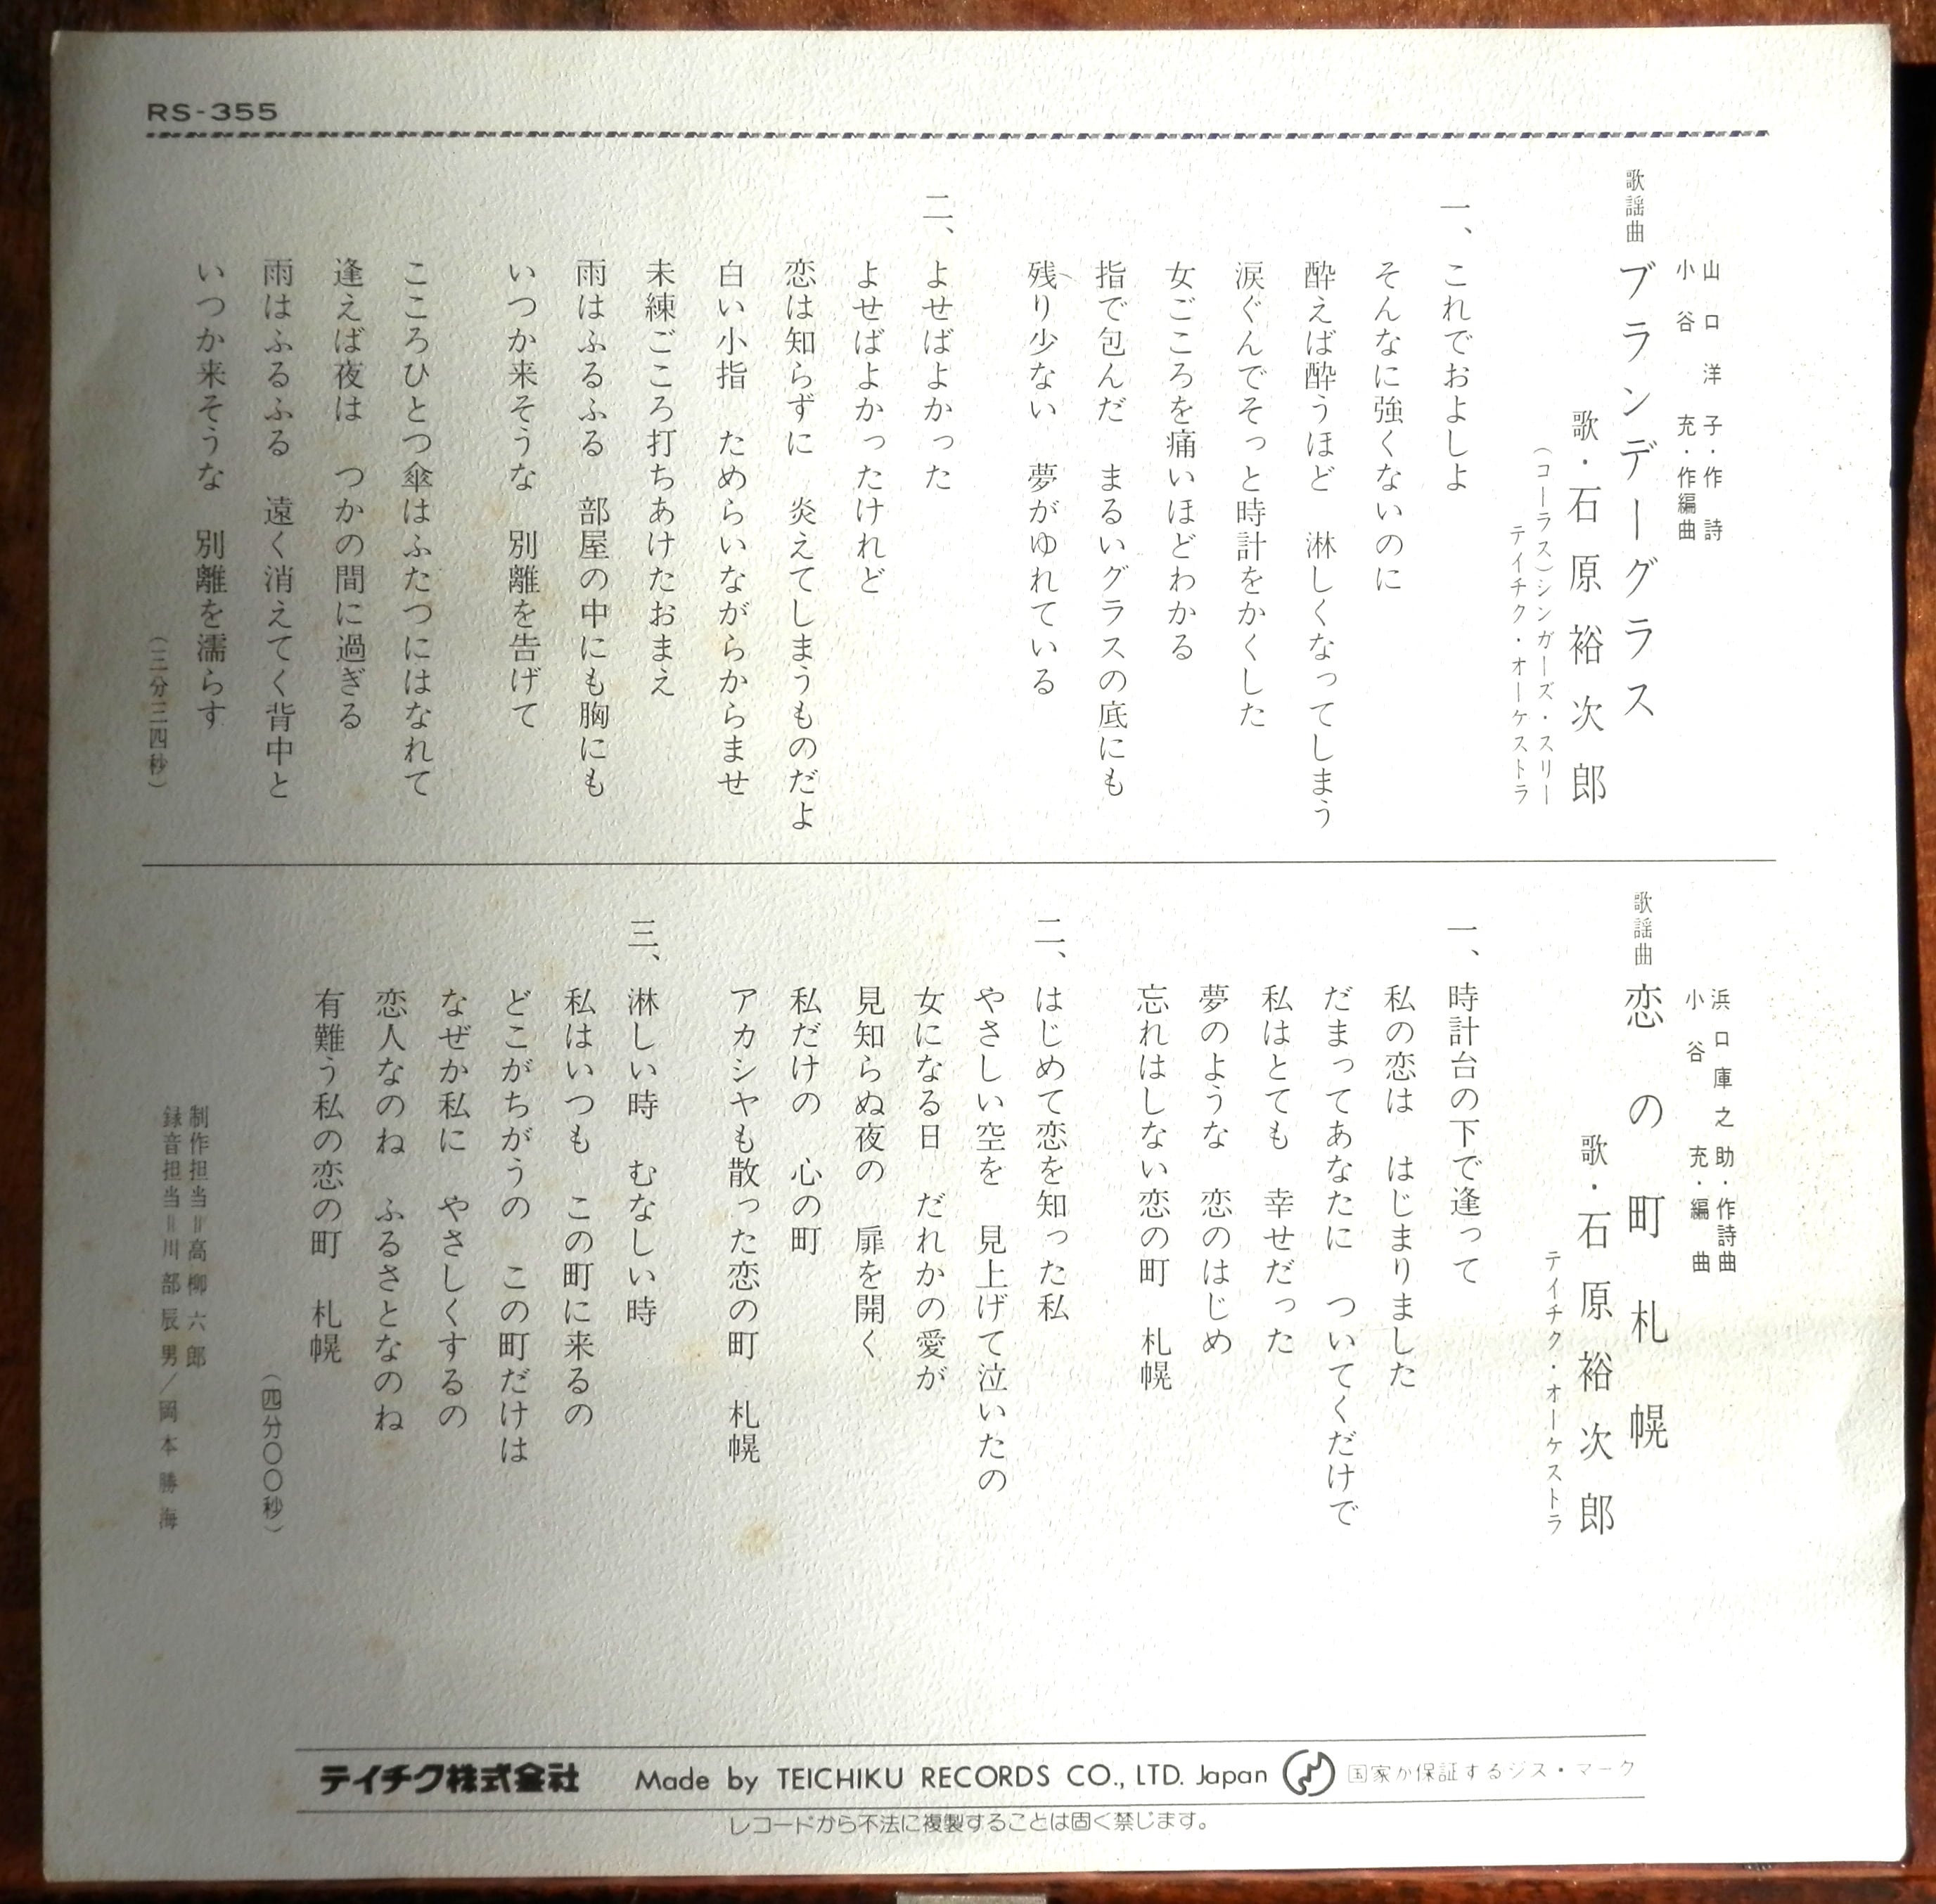 RS-355
山口洋子・作詩
小谷充・作編曲
歌謡曲 ブランデーグラス
歌・石原裕次郎
（コーラス）シンガーズ・スリー
テイチク・オーケストラ
一、これでおよしよ
そんなに強くないのに
酔えば酔うほど 淋しくなってしまう
涙ぐんでそっと時計をかくした
女ごころを痛いほどわかる
指で包んだ まるいグラスの底にも
残り少ない 夢がゆれている
二、よせばよかった
よせばよかったけれど
恋は知らずに 炎えてしまうものだよ
白い小指 ためらいながらからませ
未練ごころ打ちあけたおまえ
雨はふるふる 部屋の中にも胸にも
いつか来そうな 別離を告げて
こころひとつ傘はふたつにはなれて
逢えば夜は つかの間に過ぎる
雨はふるふる 遠く消えてく背中と
いつか来そうな 別離を濡らす
（三分三四秒）
浜口庫之助・作詩曲
小谷充・編曲
歌謡曲 恋の町札幌
歌・石原裕次郎
テイチク・オーケストラ
一、時計台の下で逢って
私の恋は はじまりました
だまってあなたに ついてくだけで
私はとても 幸せだった
夢のような 恋のはじめ
忘れはしない恋の町 札幌
二、はじめて恋を知った私
やさしい空を 見上げて泣いたの
女になる日 だれかの愛が
見知らぬ夜の 扉を開く
私だけの 心の町
アカシヤも散った恋の町 札幌
三、淋しい時 むなしい時
私はいつも この町に来るの
どこがちがうの この町だけは
なぜか私に やさしくするの
恋人なのね ふるさとなのね
有難う私の恋の町 札幌
（四分〇〇秒）
制作担当＝高柳六郎
録音担当＝川部辰男／岡本勝海
テイチク株式会社 Made by TEICHIKU RECORDS CO., LTD. Japan 国家が保証するジス・マーク
レコードから不法に複製することは固く禁じます。